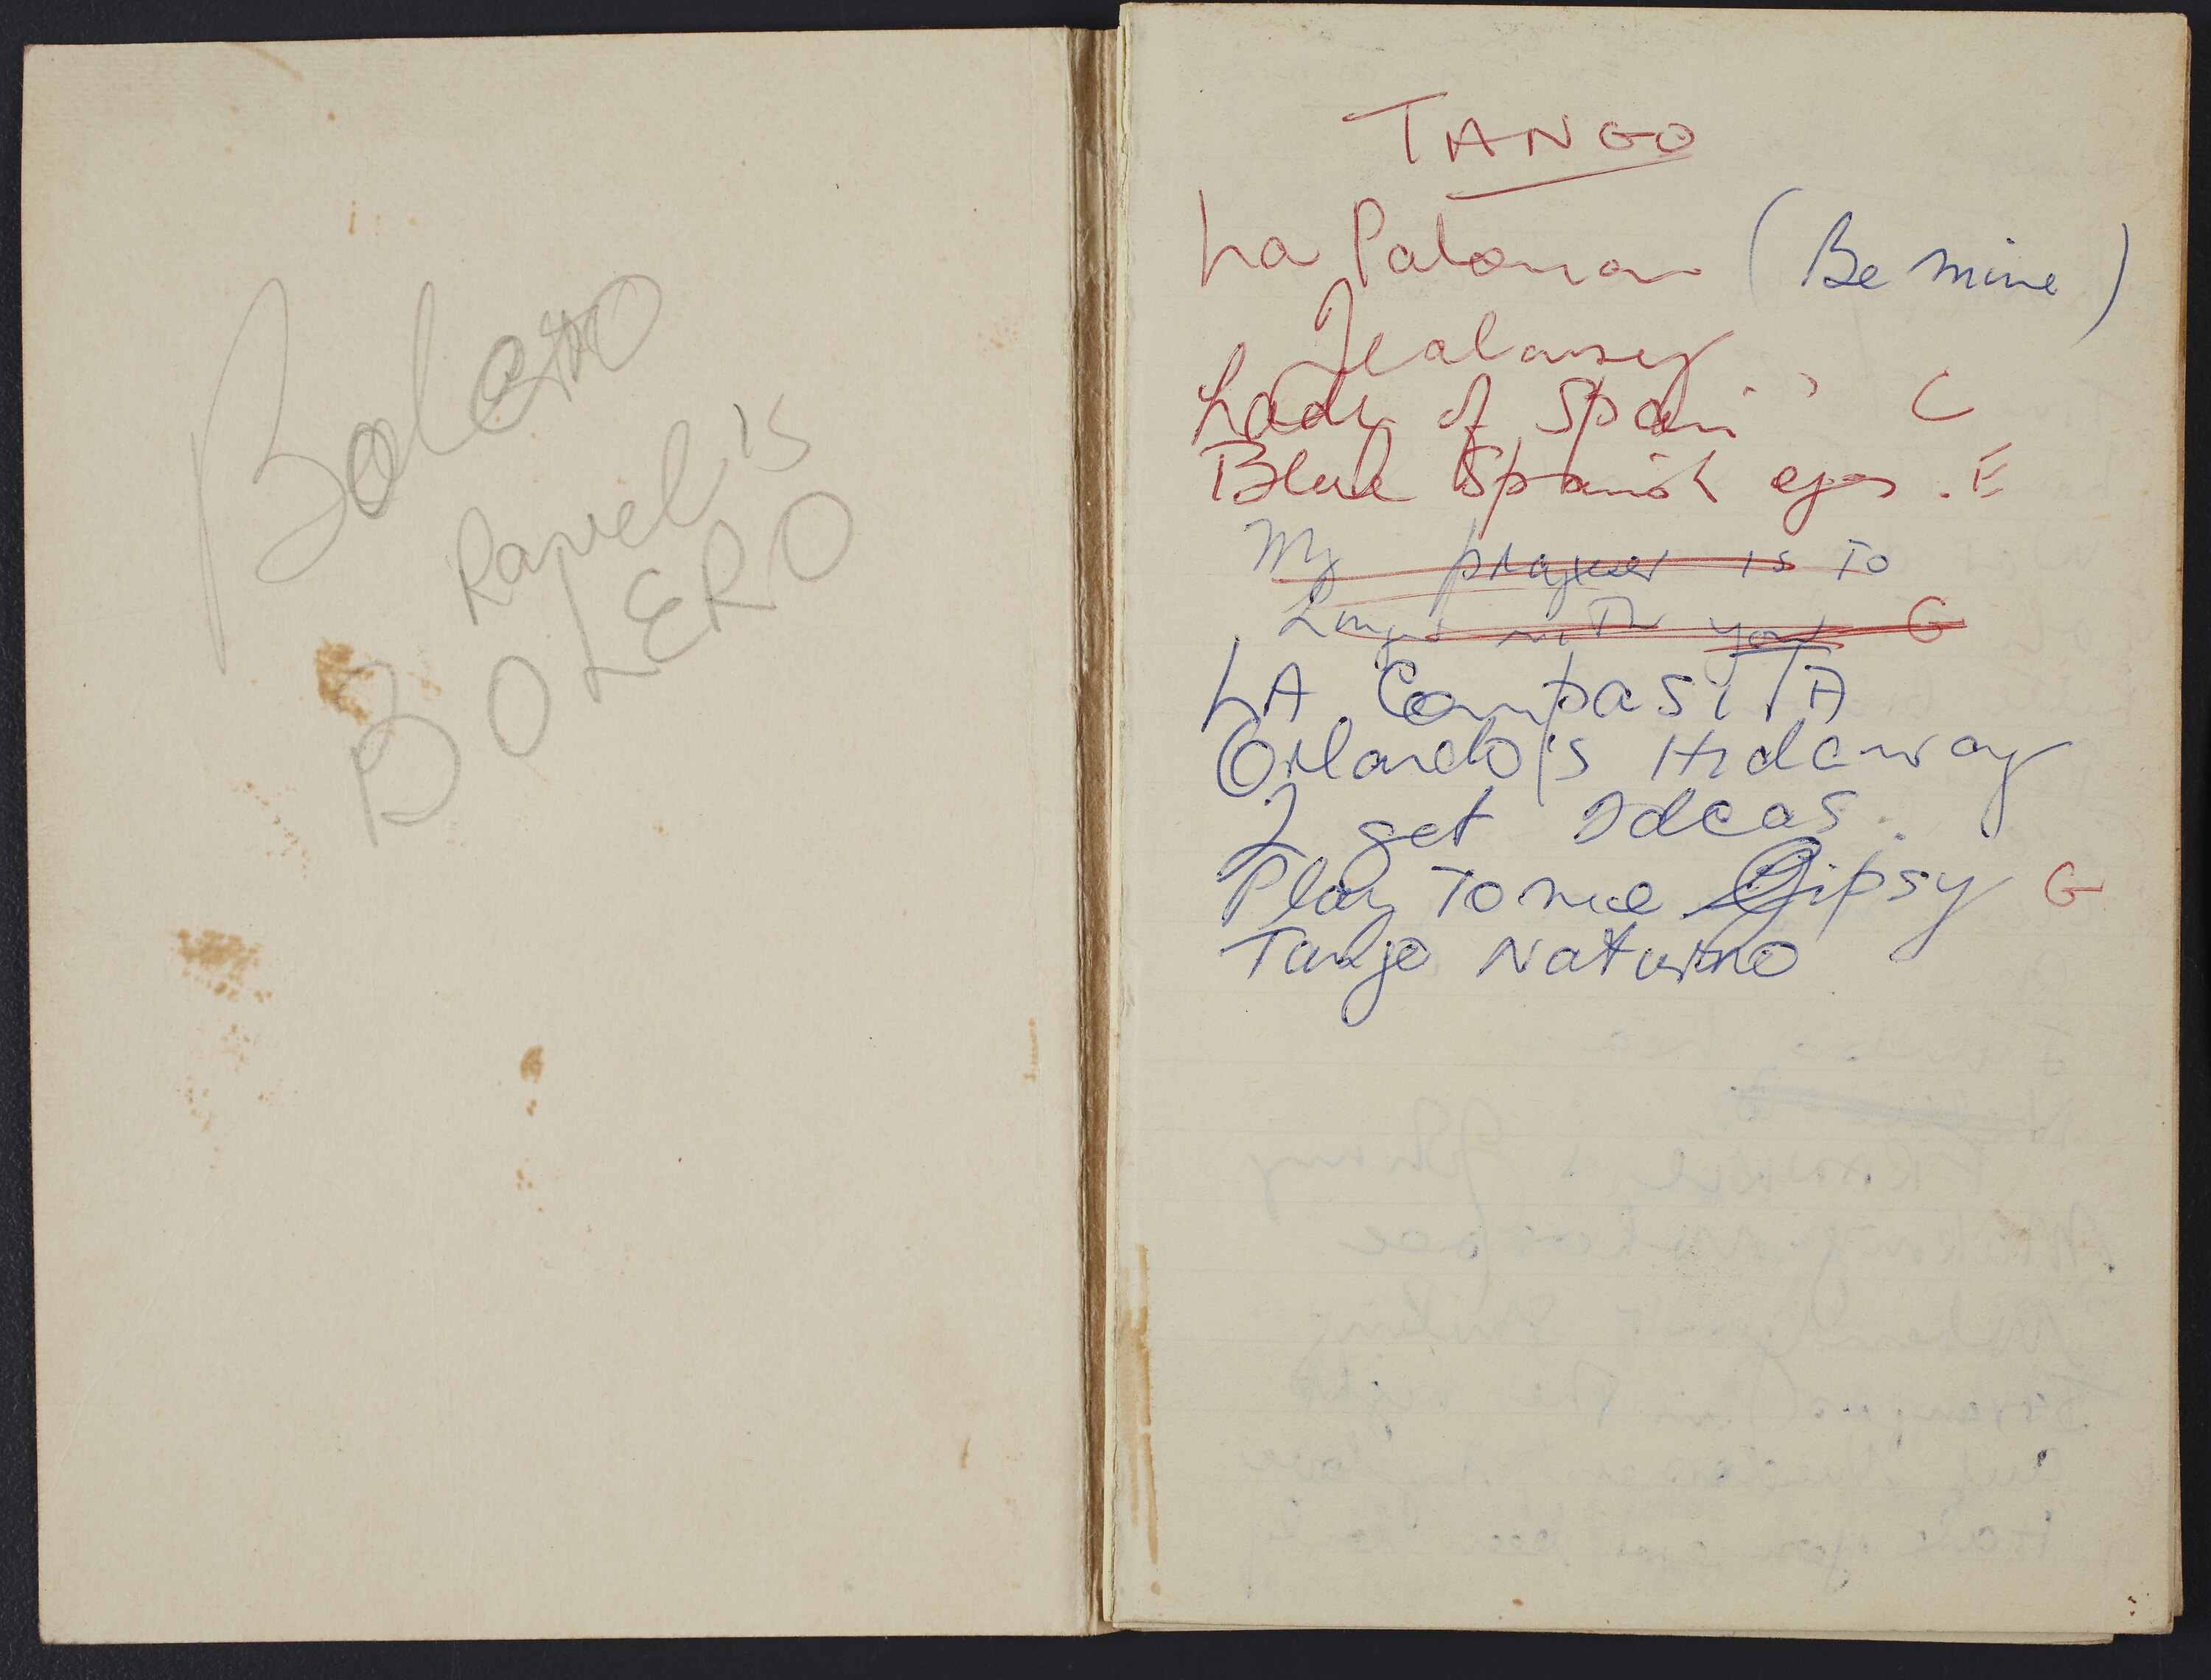 Bolero
Ravel's
BOLERO
TANGO
La Paloma (Be mine)
Jealousey
Lady of Spain C
Blue Spanish eyes. E
My prayer is To
Linger with you G
LA Compasita
Orlando's Hidaway
I get Ideas.
Play To me Gipsy G
Tango Naturno